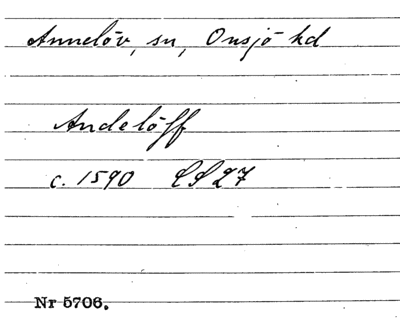 Annelöv, sn, Onsjö hd
Andelöff
c. 1590 LS 27
Nr 5706.